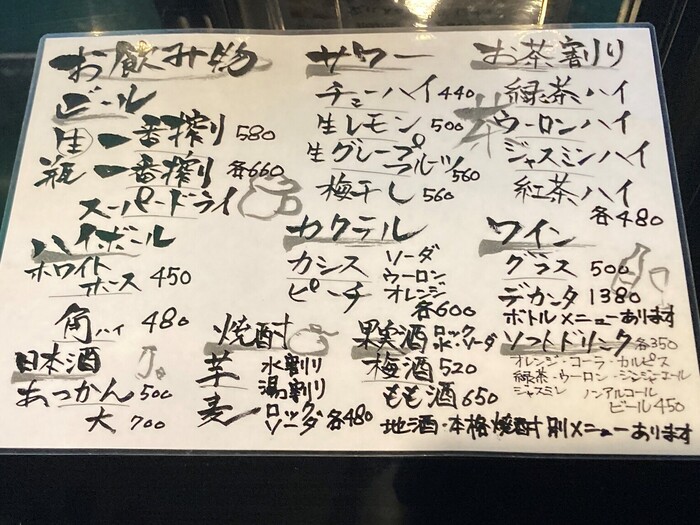 お飲み物
ビール
生 一番搾り 580
瓶 一番搾り 各660
スーパードライ
ハイボール
ホワイト
ホース 450
角ハイ 480
日本酒
あつかん 500
大 700
サワー
チューハイ 440
生レモン 500
生グレープ
フルーツ 560
梅干し 560
カクテル
カシス ソーダ
ウーロン
ピーチ オレンジ
各600
焼酎
芋 水割り
湯割り
麦 ロック
ソーダ 各480
果実酒 ロック
水・ソーダ
梅酒 520
もも酒 650
お茶割り
緑茶ハイ
ウーロンハイ
ジャスミンハイ
紅茶ハイ
各480
ワイン
グラス 500
デカンタ 1380
ボトルメニューあります
ソフトドリンク 各350
オレンジ・コーラ・カルピス
緑茶・ウーロン・ジンジャエール
ジャスミン ノンアルコール
ビール 450
地酒・本格焼酎別メニューあります